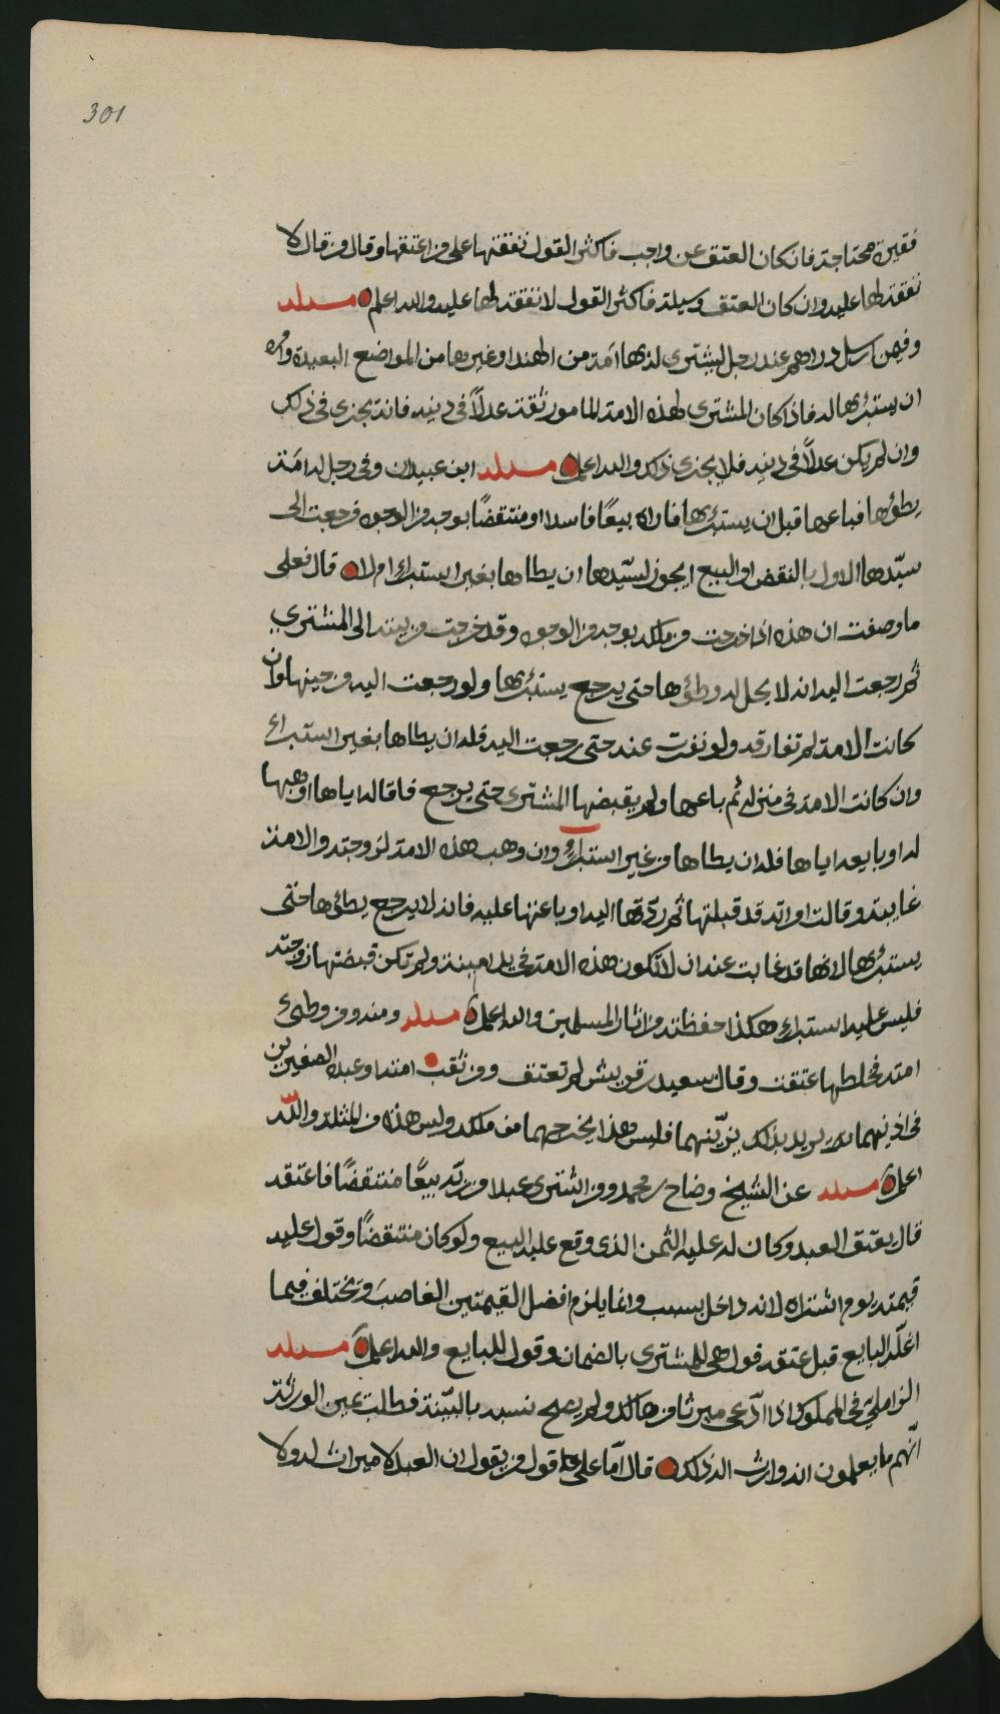 301
فقيرة محتاجة فان كان العتق عن واجب فاكثر القول نفقتها على من اعتقها وقال من قال لا
نفقة لها عليه وان كان العتق وسيلة فاكثر القول لا نفقة لها عليه والله اعلم مسئلة
وفيمن ارسل دراهم عند رجل ليشتري له بها امة من الهند او غيرها من المواضع البعيدة وامره
ان يستبرئها له فاذا كان المشتري لهذه الامة المامور ثقة عدلاً في دينه فانه يجزى في ذلك
وان لم يكن عدلاً في دينه فلا يجزى ذلك والله اعلم مسئلة ابن عبيدان وفي رجل له امة
يطؤها فباعها قبل ان يستبرئها فاراه بيعًا فاسدا او منتقضًا بوجه من الوجوه فرجعت الى
سيّدها الاول بالنقض او البيع ايجوز لسيّدها ان يطاها بغير استبراء ام لا قال فعلى
ما وصفت ان هذه اذا خرجت من ملكه بوجه من الوجوه وقد خرجت من بيته الى المشتري
ثم رجعت اليه انه لا يحل له وطؤها حتى يرجع يستبرئها ولو رجعت اليه من حينها وان
كانت الامة لم تفارقه ولو نفرت عنه حتى رجعت اليه فله ان يطاها بغير استبراء
وان كانت الامة في منزله ثم باعها ولم يقبضها المشتري حتى يرجع فاقاله اياها او وهبها
له او بايعه اياها فله ان يطاها من غير استبراء وان وهب هذه الامة لزوجته والامة
غايبة وقالت امراته قد قبلتها ثم ردّتها اليه او باعتها عليه فانه لا يرجع يطئها حتى
يستبرئها لانها قد غابت عنه الا ان تكون هذه الامة في يد امينة ولم تكن قبضتها زوجته
فليس عليه استبراء هكذا حفظته من اثار المسلمين والله اعلم مسئلة ومنه ومن وطئ
امته فخلطها عتقت وقال سعيد بن قريش لم تعتق ومن ثقب امته او عبده الصغيرين
في اذنيهما يريد بذلك يزيّنهما فليس هذا يخرجهما من ملكه وليس هذه من المثلة والله
اعلم مسئلة عن الشيخ وضاح بن محمد ومن اشترى عبدا من ربّه بيعًا منتقضًا فاعتقه
قال يعتق العبد وكان له عليه الثمن الذى وقع عليه البيع ولو كان منتقضًا وقول عليه
قيمته يوم اشتراه لانه داخل بسبب وانما يلزم افضل القيمتين الغاصب ويختلف فيما
اغلّه البايع قبل عتقه قول هي للمشتري بالضمان وقول للبايع والله اعلم مسئلة
الزاملي في المملوك اذا ادّعى ميراثا من هالك ولم يصح نسبه بالبيّنة فطلب يمين الورثة
انّهم ما يعلمون انه وارث الذلك قال اما على قول من يقول ان العبد لا ميراث له ولا